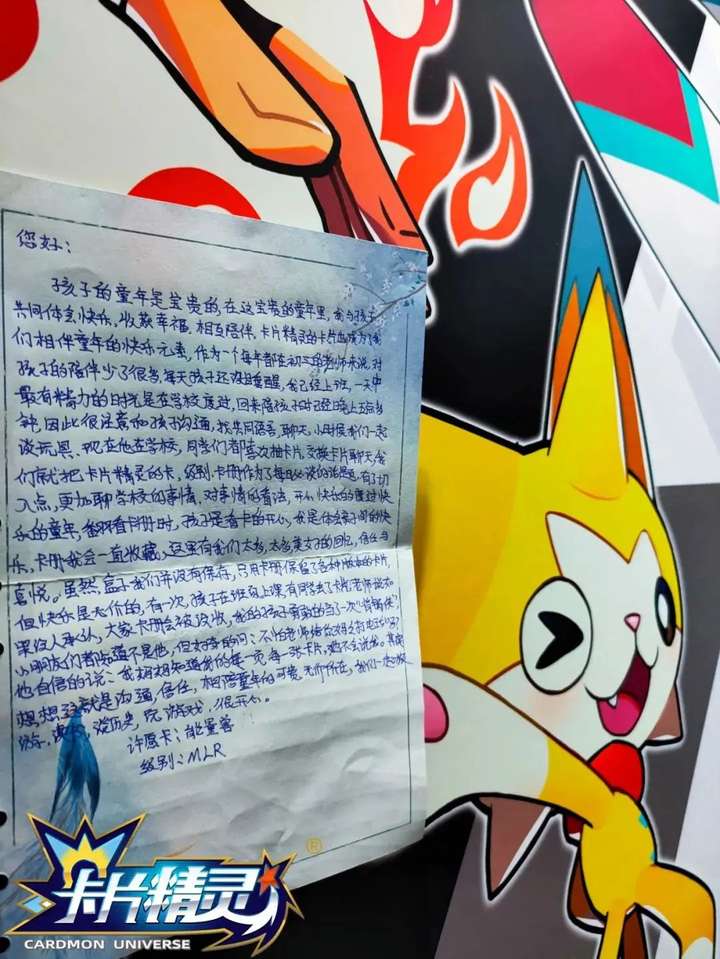 您好:
孩子的童年是宝贵的,在这宝贵的童年里,能与孩子
共同体会快乐,收获幸福,相互陪伴,卡片精灵的卡片也成为了我
们相伴童年的快乐元素,作为一个每年都在初三的老师来说,对
孩子的陪伴少了很多,每天孩子还没睡醒,我已经上班,一天中
最有精力的时光是在学校度过,回来陪孩子时已经晚上五点多
钟,因此很注意和孩子沟通,找共同语言,聊天,小时候我们一起
谈玩具、现在他在学校,同学们都喜欢抽卡片,交换卡片聊天,我
们就把卡片精灵的卡,级别,卡册作为了每日必谈的话题,有了切
入点,更加聊学校的事情,对事情的看法,开心快乐的度过快
乐的童年,翻看卡册时,孩子是看卡的开心,我是体会亲子间的快
乐,卡册我会一直收藏,这里有我们太多,太多美好的回忆,信任与
喜悦。虽然,盒子我们并没有保存,只用卡册保留了各种版本的卡片,
但快乐是无价的,有一次,孩子在班级上课,有同学丢了卡片,老师说如
果没人承认,大家卡册会被没收,我的孩子勇敢的当了一次"背锅侠",
小朋友们都知道不是他,但好奇的问:不怕老师给你妈打电话吗?
他自信的说:我妈妈知道我的每一页,每一张卡片,她不会说我。其实
想想这就是沟通,信任,相陪童年的可贵,无所不在,我们一起旅
游,读书,谈历史,玩游戏,很开心。
许愿卡:能量兽
级别:MLR
卡片精灵
®
CARDMON UNIVERSE